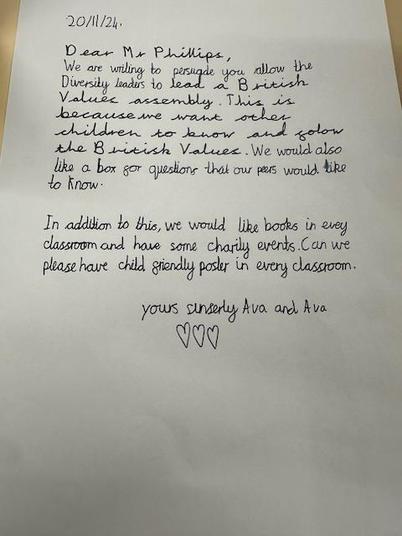 20/11/24.
Dear Mr Phillips,
We are writing to persuade you allow the
Diversity leaders to lead a British
Values assembly. This is
because we want other
children to know and folow
the British Values. We would also
like a box for questions that our peers would like
to know.
In addition to this, we would like books in evey
classroom and have some charity events. Can we
please have child friendly poster in every classroom.
yours sinserly Ava and Ava